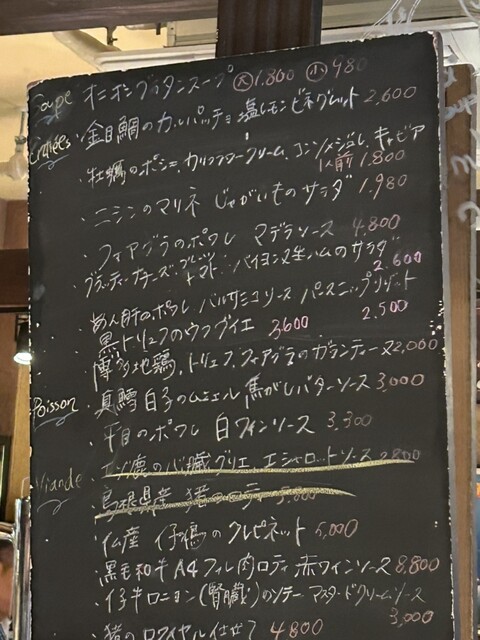 Soupe オニオングラタンスープ 大 1,800 小 980
Entrées 金目鯛のカルパッチョ 塩レモンビネグレット 2,600
・牡蠣のポシェ、カリフラワークリーム、コンソメジュレ、キャビア
1人前 1,800
・ニシンのマリネ じゃがいものサラダ 1,980
・フォアグラのポワレ マデラソース 4,800
・ブラッティーナチーズ、フルーツトマト、バイヨンヌ生ハムのサラダ
2,600
・あん肝のポワレ バルサミコソース パースニップリゾット
2,500
・黒トリュフのウフブイエ 3600
・博多地鶏、トリュフ、フォアグラのガランティーヌ 2,000
Poisson ・真鱈白子のムニエル 焦がしバターソース 3,000
・平目のポワレ 白ワインソース 3,300
Viande ・エゾ鹿の心臓グリエ エシャロットソース 2,800
・島根県産 猪の
・仏産 仔鳩のクレピネット 5,000
・黒毛和牛A4フィレ肉ロティ 赤ワインソース 8,800
・仔牛ロニョン(腎臓)のソテー マスタードクリームソース
3,000
・猪のロワイヤル仕立て 4800